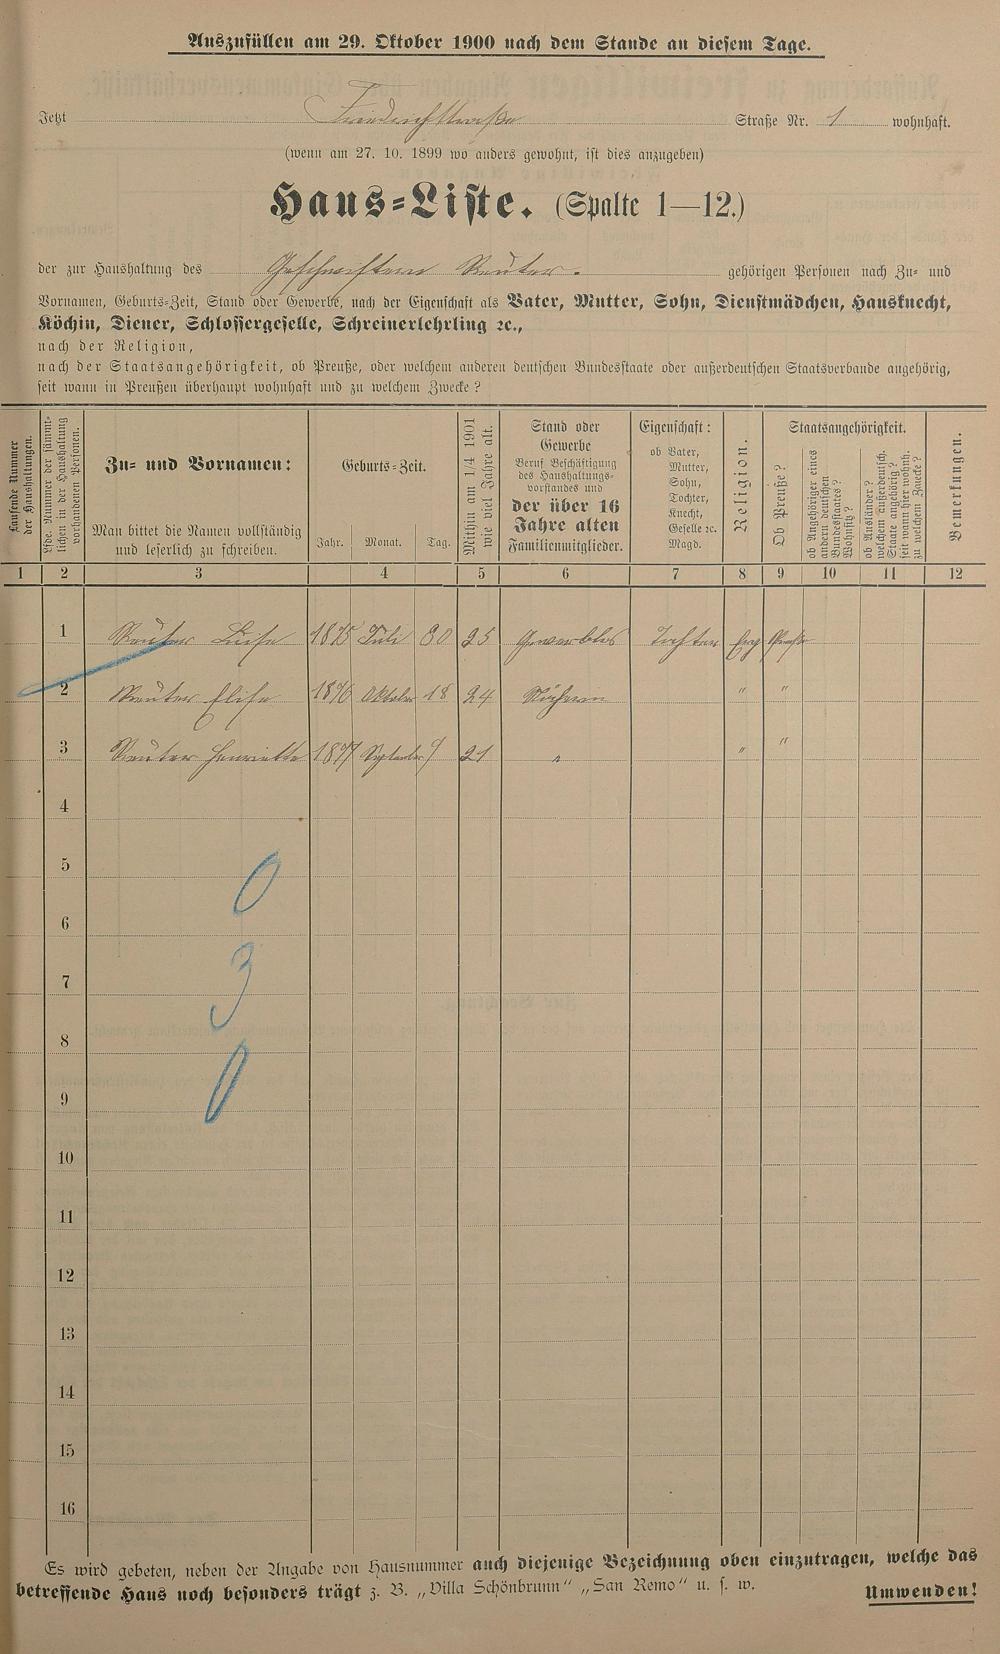 Auszufüllen am 29. Oktober 1900 nach dem Stande an diesem Tage.
Jetzt Friedrichstraße Straße Nr. 1 wohnhaft.
(wenn am 27. 10. 1899 wo anders gewohnt, ist dies anzugeben)
Haus-Liste. (Spalte 1—12.)
der zur Haushaltung des Geschwistern Reuter. gehörigen Personen nach Zu- und
Vornamen, Geburts-Zeit, Stand oder Gewerbe, nach der Eigenschaft als Vater, Mutter, Sohn, Dienstmädchen, Hausknecht,
Köchin, Diener, Schlossergeselle, Schreinerlehrling ꝛc.,
nach der Religion,
nach der Staatsangehörigkeit, ob Preuße, oder welchem anderen deutschen Bundesstaate oder außerdeutschen Staatsverbande angehörig,
seit wann in Preußen überhaupt wohnhaft und zu welchem Zwecke?
Laufende Nummer
der Haushaltungen.
Lfde. Nummer der sämmt-
lichen in der Haushaltung
vorhandenen Personen.
Zu- und Vornamen:
Man bittet die Namen vollständig
und leserlich zu schreiben.
Geburts-Zeit.
Jahr. Monat. Tag.
Mithin am 1/4 1901
wie viel Jahre alt.
Stand oder
Gewerbe
Beruf Beschäftigung
des Haushaltungs-
vorstandes und
der über 16
Jahre alten
Familienmitglieder.
Eigenschaft:
ob Vater,
Mutter,
Sohn,
Tochter,
Knecht,
Geselle ꝛc.
Magd.
Religion.
Staatsangehörigkeit.
Ob Preuße?
ob Angehöriger eines
andern deutschen
Bundesstaates?
Wohnsitz?
ob Ausländer?
welchem außerdeutsch.
Staate angehörig?
seit wann hier wohnh.
zu welchem Zwecke?
Bemerkungen.
1 2 3 4 5 6 7 8 9 10 11 12
1 Reuter Luise 1875 Juli 30 25 Gewerblos Tochter Evg Preuße
2 Reuter Elise 1876 Oktober 18 24 Näherin " "
3 Reuter Henriette 1877 September 9 21 " " "
4
5
0
6
7
3
8
9
0
10
11
12
13
14
15
16
Es wird gebeten, neben der Angabe von Hausnummer auch diejenige Bezeichnung oben einzutragen, welche das
betreffende Haus noch besonders trägt z. B. „Villa Schönbrunn" „San Remo" u. s. w. Umwenden!